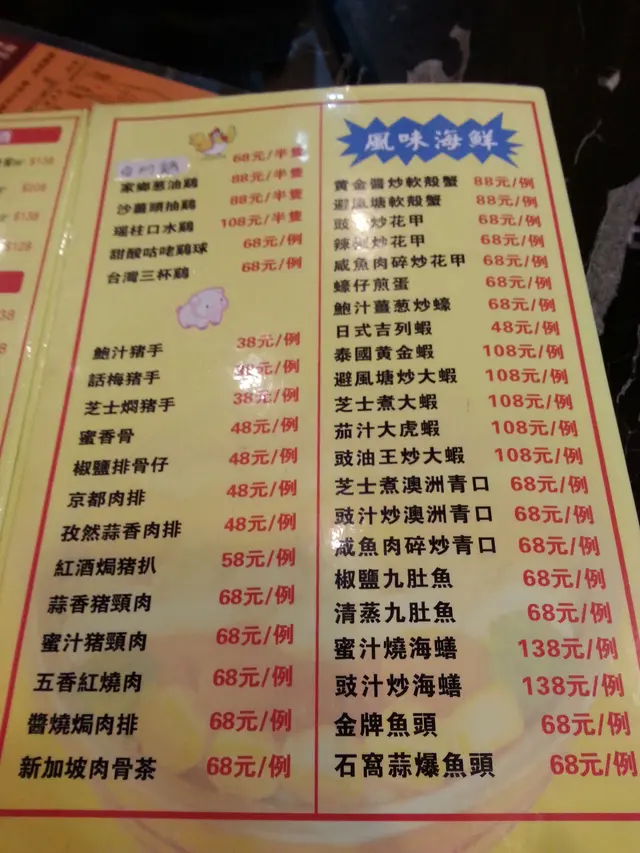 $138
$208
$138
$128
68元/半隻
家鄉葱油鷄 88元/半隻
沙薑頭抽鷄 88元/半隻
瑤柱口水鷄 108元/半隻
甜酸咕咾鷄球 68元/例
台灣三杯鷄 68元/例
鮑汁猪手 38元/例
話梅猪手 元/例
芝士燜猪手 38元/例
蜜香骨 48元/例
椒鹽排骨仔 48元/例
京都肉排 48元/例
孜然蒜香肉排 48元/例
紅酒焗猪扒 58元/例
蒜香猪頸肉 68元/例
蜜汁猪頸肉 68元/例
五香紅燒肉 68元/例
醬燒焗肉排 68元/例
新加坡肉骨茶 68元/例
風味海鮮
黄金醬炒軟殼蟹 88元/例
避風塘軟殼蟹 88元/例
豉汁炒花甲 68元/例
辣椒炒花甲 68元/例
咸魚肉碎炒花甲 68元/例
蠔仔煎蛋 68元/例
鮑汁薑葱炒蠔 68元/例
日式吉列蝦 48元/例
泰國黄金蝦 108元/例
避風塘炒大蝦 108元/例
芝士煮大蝦 108元/例
茄汁大虎蝦 108元/例
豉油王炒大蝦 108元/例
芝士煮澳洲青口 68元/例
豉汁炒澳洲青口 68元/例
咸魚肉碎炒青口 68元/例
椒鹽九肚魚 68元/例
清蒸九肚魚 68元/例
蜜汁燒海鱔 138元/例
豉汁炒海鱔 138元/例
金牌魚頭 68元/例
石窩蒜爆魚頭 68元/例